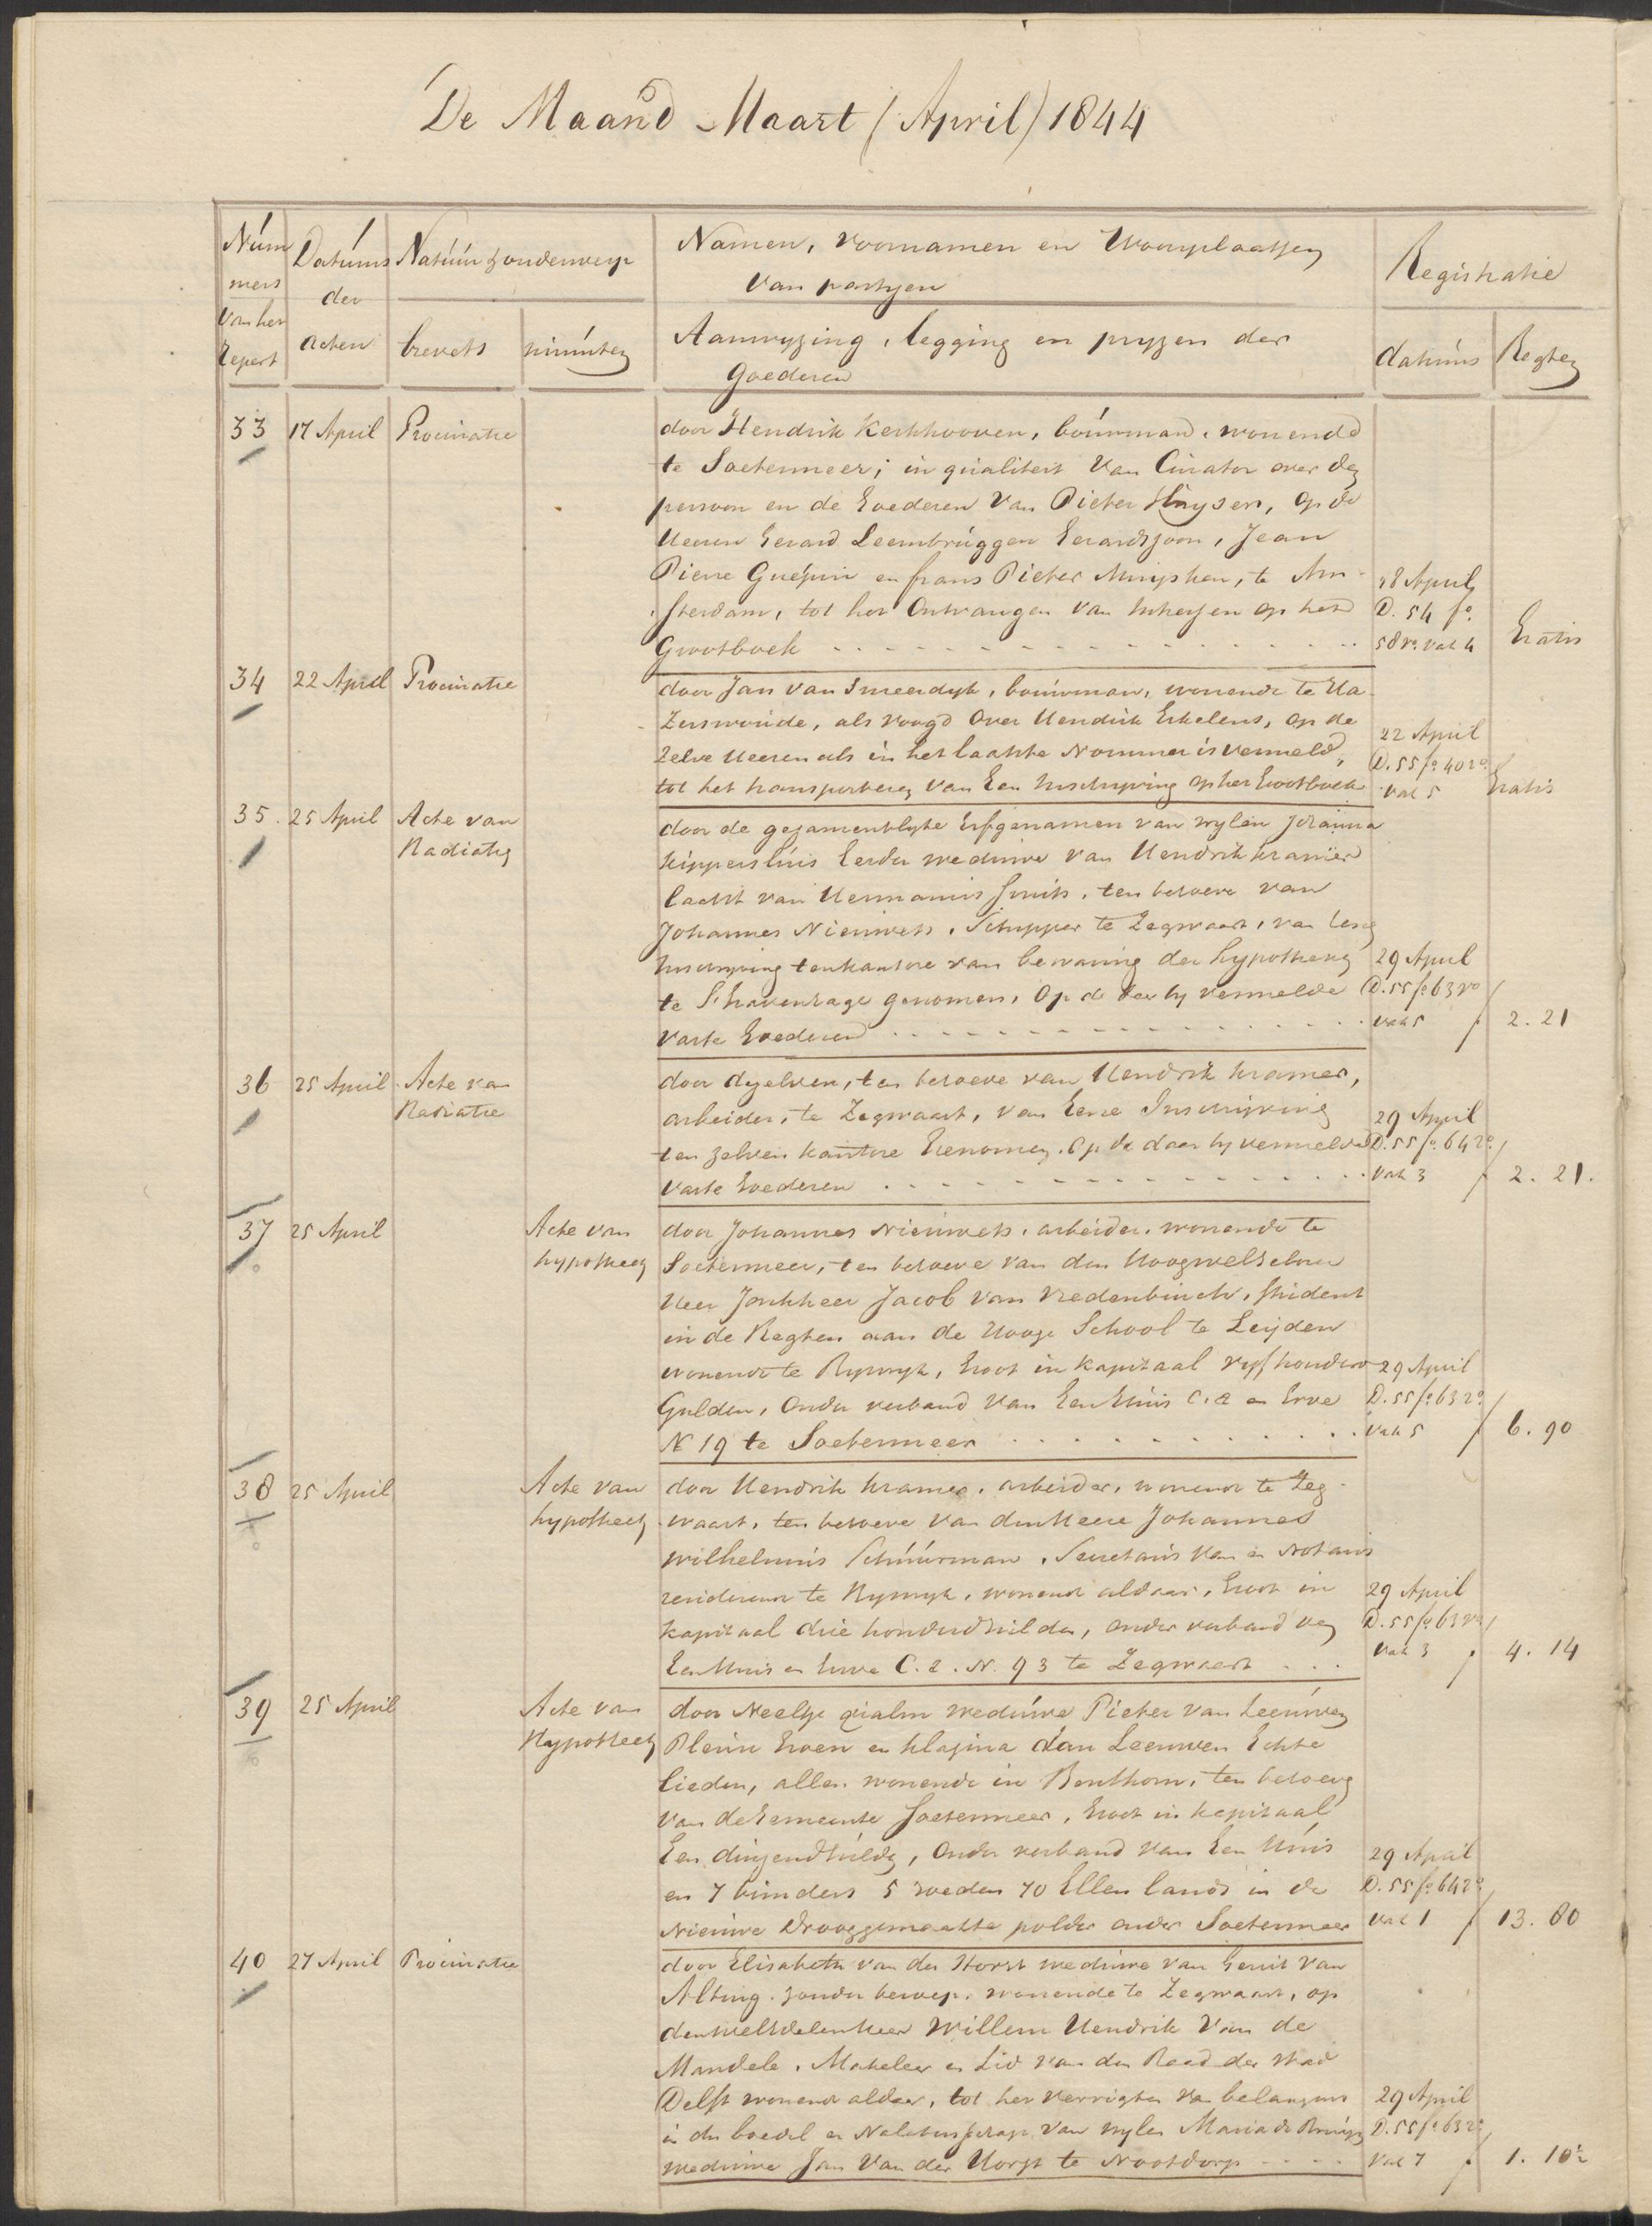 De Maand Maart (April) 1844
Num
mers
van het
Repert
Datums
der
acten
Natuur & onderwerp
brevets
minuten
Namen, Voornamen en Woonplaatsen
van partyen
Aanwyzing, legging en pryzen der
Goederen
Registratie
datums
Regten
33 17 April Procuratie
door Hendrik Kerkhooven, bouwman, wonende
te Soetermeer; in qualiteit van Curator over den
persoon en de Goederen van Pieter Huysen, op de
Heeren Gerard Leembruggen Gerardszoon, Jean
Pierre Guépin en frans Pieter Muysken, te Am-
sterdam, tot het Ontvangen van Intressen op het
Grootboek
18 April
D. 54 fo.
58 vo. vak 4
Gratis
34 22 April Procuratie
door Jan van Smeerdyk, bouwman, wonende te Ha-
zerswoude, als voogd over Hendrik Erkelens, op de
zelve Heeren als in het laatste Nommer is vermeld,
tot het transporteren van Een Inschryving op het Grootboek
22 April
D. 55 fo. 40 ro.
vak 5
Gratis
35. 25 April Acte van
Radiatie
door de gezamentlyke Erfgenamen van wylen Johanna
Kippersluis Eerder weduwe van Hendrik Kramer
laatst van Hermanus Smits, ten behoeve van
Johannes Nieuwets, Schipper te Zegwaart, van Eene
Inschryving ten kantore van bewaring der hypotheken
te S'Gravenhage genomen, Op de daarby vermelde
vaste Goederen
29 April
D. 55 fo. 63 vo
vak 5
f 2. 21
36 25 April Acte van
Radiatie
door dezelven, ten behoeve van Hendrik Kramer,
arbeider, te Zegwaart, van Eene Inschrijving
ten zelven kantore Genomen. Op de daarby vermelde
vaste Goederen
29 April
D. 55 fo. 64 ro.
vak 3
f 2. 21.
37 25 April
Acte van
hypotheek
door Johannes Nieuwets, arbeider, wonende te
Soetermeer, ten behoeve van den Hoogwelgeboren
Heer Jonkheer Jacob van Vredenburch, Student
in de Regten aan de Hooge School te Leijden
wonende te Ryswyk, Groot in Kapitaal vyfhonderd
Gulden, Onder verband van Een Huis C.a en Erve
N 19 te Soetermeer
29 April
D. 55 fo. 63 ro
vak 5
f 6. 90
38 25 April
Acte van
hypotheek
door Hendrik Kramer, arbeider, wonende te Zeg-
waart, ten behoeve van den Heere Johannes
Wilhelmus Schuurman, Secretaris van en Notaris
resideerende te Ryswyk, wonende aldaar, Groot in
Kapitaal drie honderd Gulden, onder verband van
Een Huis en Erve C.a. N. 93 te Zegwaart
29 April
D. 55 fo. 63 vo
vak 3
f 4. 14
39 25 April
Acte van
Hypotheek
door Neeltje Qualm weduwe Pieter van Leeuwen
Pleun Groen en Klazina van Leeuwen Echte
lieden, allen wonende in Benthorn, ten behoeve
van de Gemeente Soetermeer, Groot in Kapitaal
Een duizend Gulden, Onder verband van Een Huis
en 7 bunders 5 roeden 70 Ellen lands in de
Nieuwe Drooggemaakte polder onder Soetermeer
29 April
D. 55 fo 64 ro
vak 1
f 13. 80
40 27 April Procuratie
door Elisabeth van der Horst weduwe van Gerrit van
Alting, zonder beroep, wonende te Zegwaart, op
den WelEdelen Heer Willem Hendrik van de
Mandele, Makelaar en Lid van den Raad der Stad
Delft wonende aldaar, tot het verrigten van belangens
in den boedel en Nalatenschap van wylen Maria de Bruijn
weduwe Jan van der Horst te Nootdorp
29 April
D. 55 fo 63 ro
vak 7
f 1. 10½